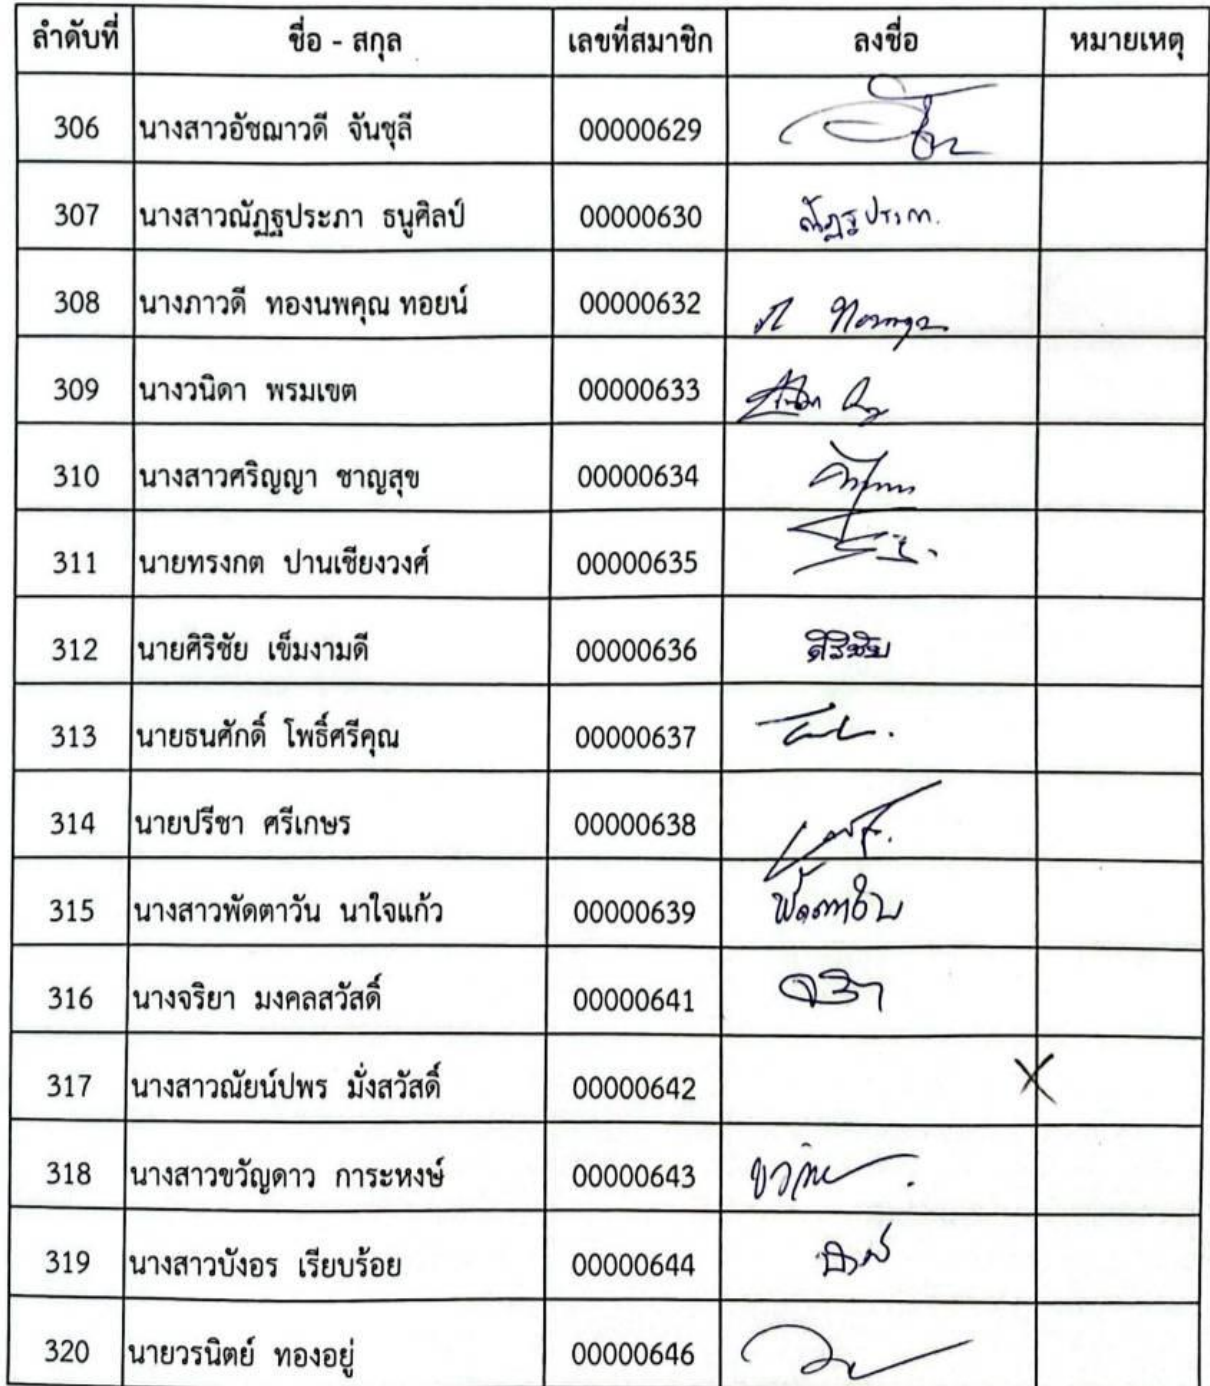 ลำดับที่ ชื่อ - สกุล เลขที่สมาชิก ลงชื่อ หมายเหตุ
306 นางสาวอัชฌาวดี จันชุลี 00000629
307 นางสาวณัฏฐประภา ธนูศิลป์ 00000630 ณัฏฐประภา
308 นางภาวดี ทองนพคุณ ทอยน์ 00000632
309 นางวนิดา พรมเขต 00000633
310 นางสาวศริญญา ชาญสุข 00000634
311 นายทรงกต ปานเชียงวงศ์ 00000635
312 นายศิริชัย เข็มงามดี 00000636 ศิริชัย
313 นายธนศักดิ์ โพธิ์ศรีคุณ 00000637
314 นายปรีชา ศรีเกษร 00000638
315 นางสาวพัดตาวัน นาใจแก้ว 00000639 พัดตาวัน
316 นางจริยา มงคลสวัสดิ์ 00000641
317 นางสาวณัยน์ปพร มั่งสวัสดิ์ 00000642 X
318 นางสาวขวัญดาว การะหงษ์ 00000643
319 นางสาวบังอร เรียบร้อย 00000644
320 นายวรนิตย์ ทองอยู่ 00000646